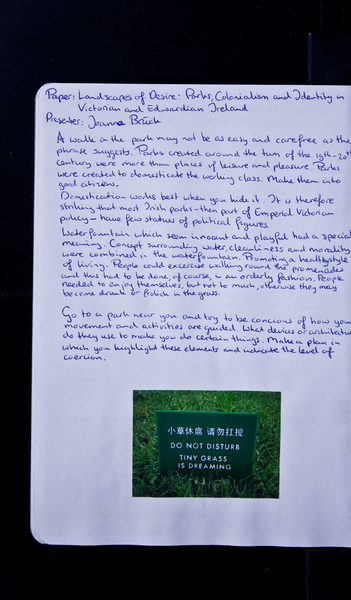 Paper: Landscapes of Desire: Parks, Colonialism and Identity in
Victorian and Edwardian Ireland
Presenter: Joanna Brück
A walk in the park may not be as easy and carefree as the
phrase suggests. Parks created around the turn of the 19th-20th
century were more than places of leisure and pleasure. Parks
were created to domesticate the working class. Make them into
good citizens.
Domestication works best when you hide it. It is therefore
striking that most Irish parks - then part of Emperial Victorian
policy - have few statues of political figures
Waterfountain which seem innocent and playful had a special
meaning. Concept surrounding water, cleanliness and morality
were combined in the waterfountain. Promoting a healthy style
of living. People could excercise walking round the promenades
and this had to be done, of course, in an orderly fashion. People
needed to enjoy themselves, but not to much, otherwise they may
become drunk or frolick in the grass.
Go to a park near you and try to be concious of how your
movement and activities are guided. What devices or architecture
do they use to make you do certain things. Make a plan in
which you highlight these elements and indicate the level of
coercion.
小草休
请勿
DO NOT DISTURB
TINY GRASS
IS DREAMING